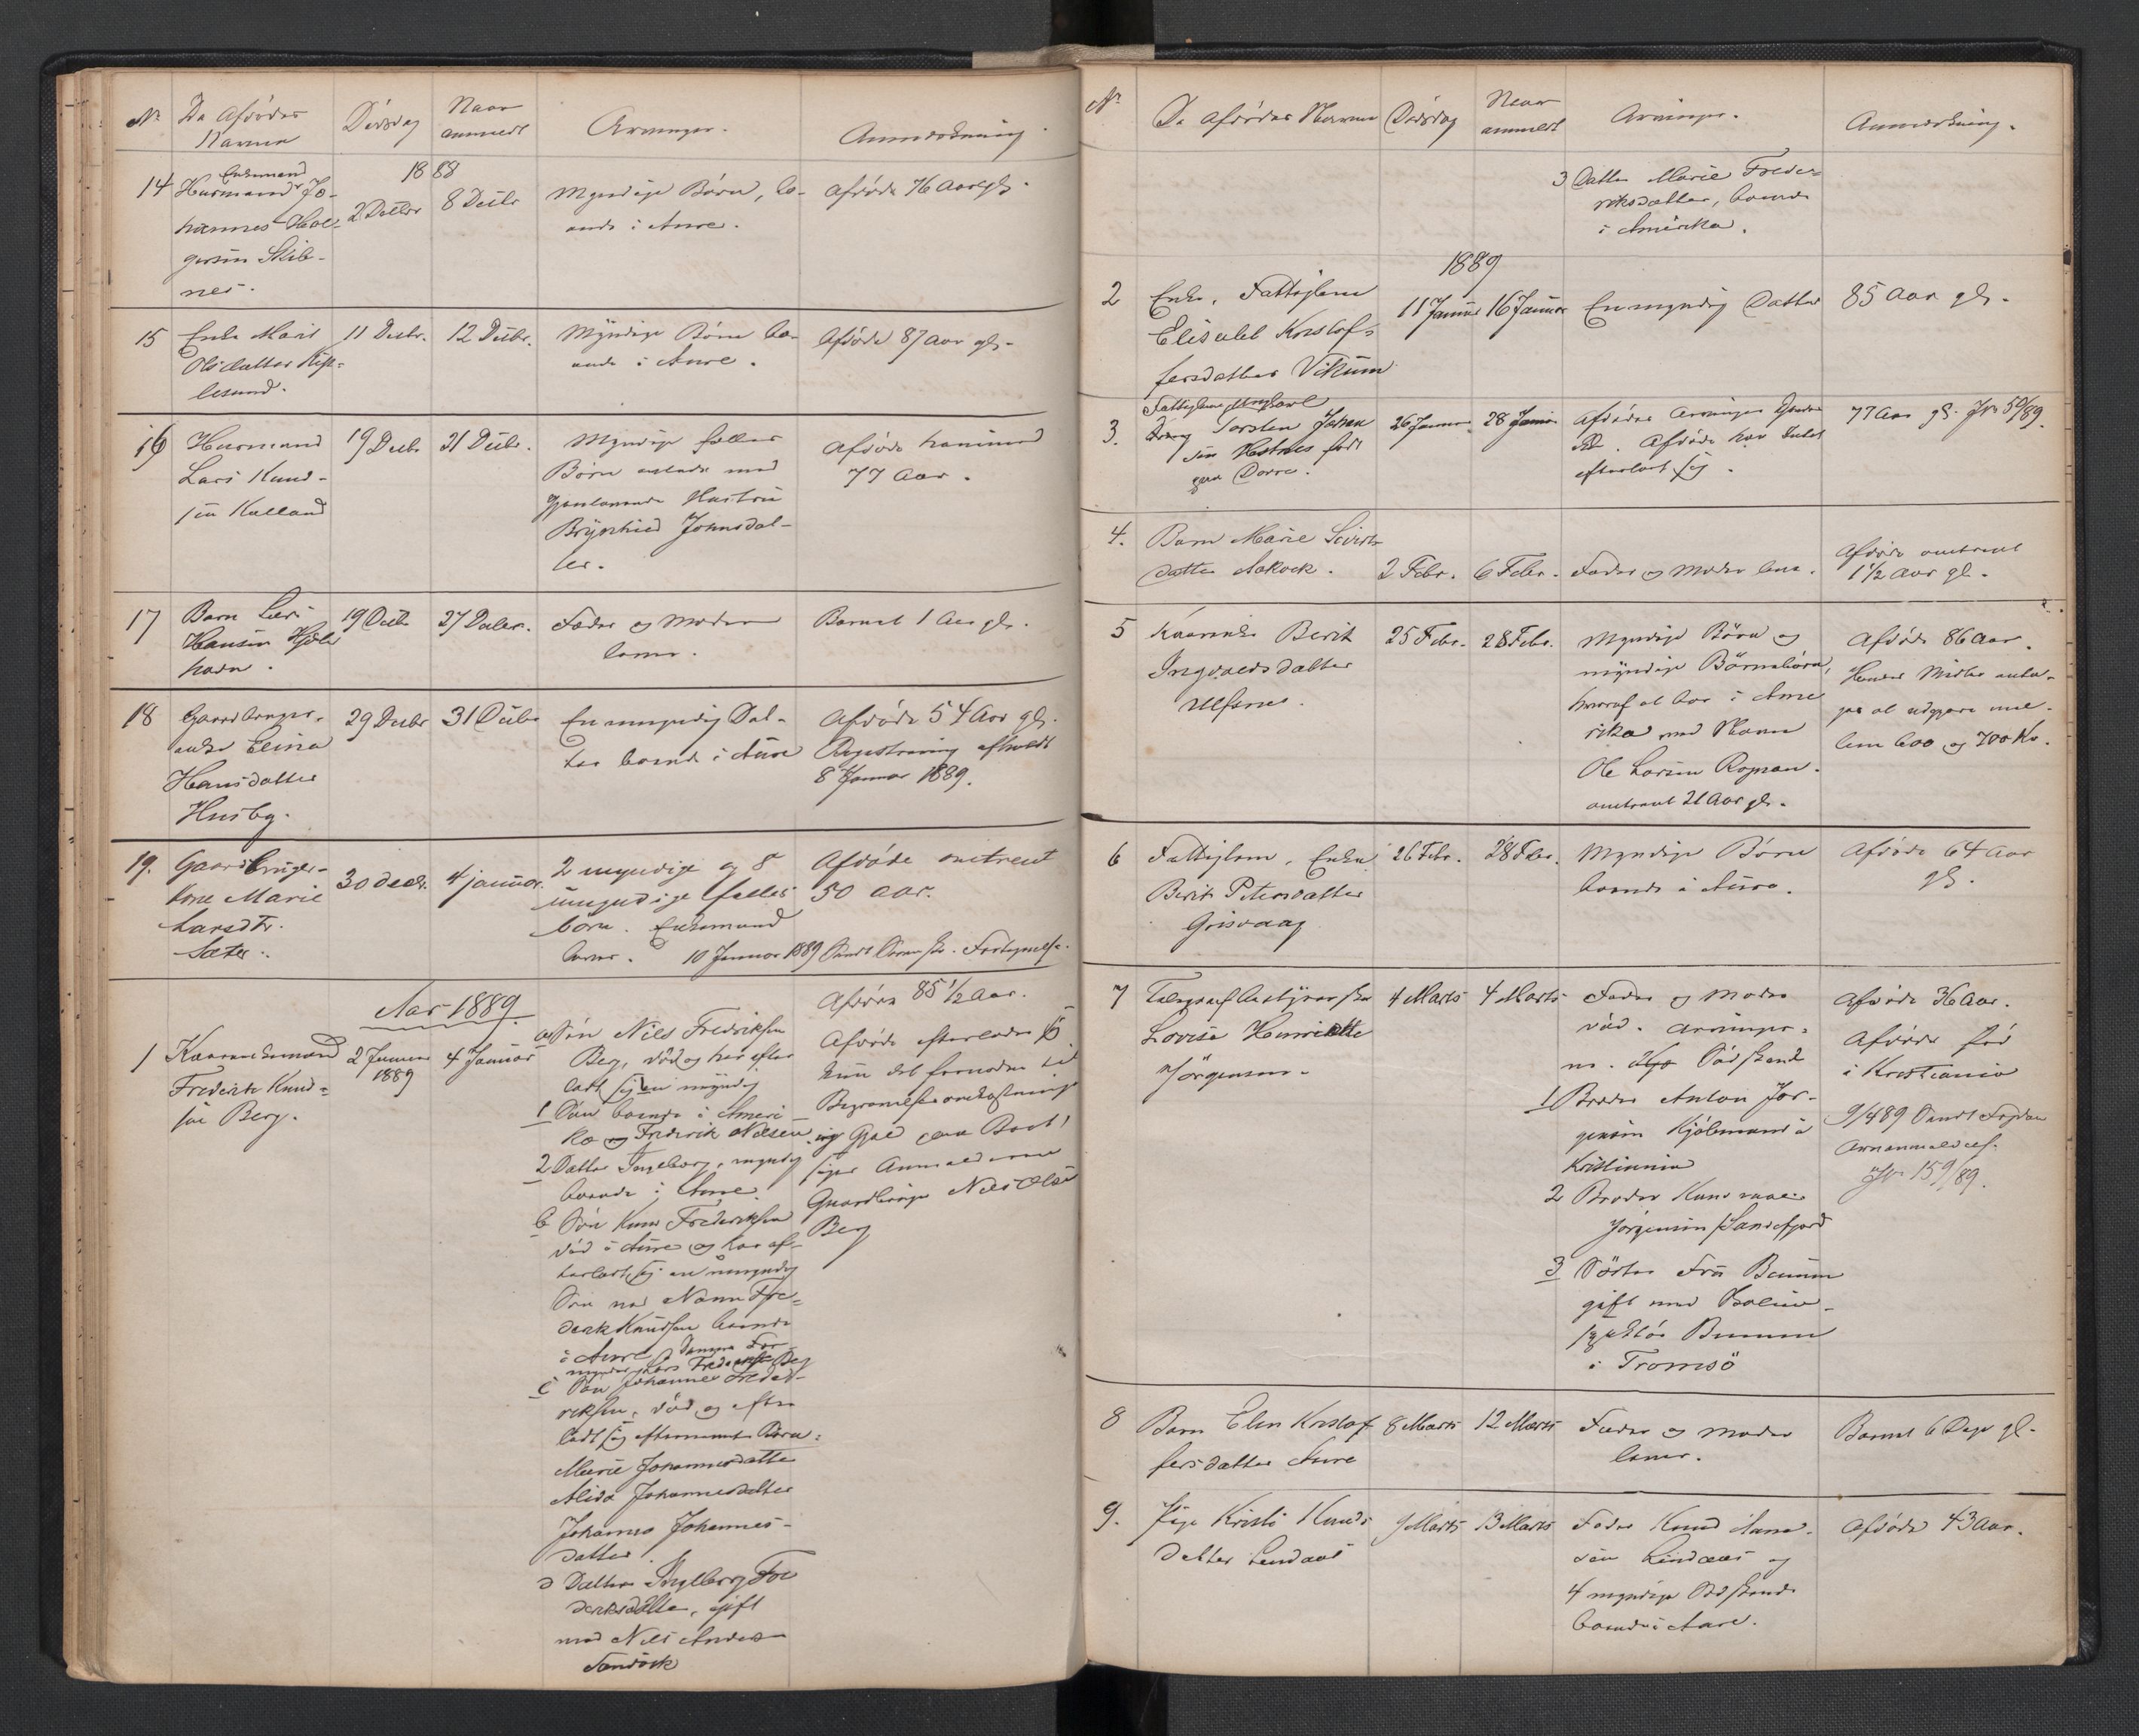 No
De Afdødes
Navn
Dødsdag
Naar
anmeldt
Arvinger.
Anmærkning.
1888
14
Enkemand
Husmand Jo-
hannes
gersen Skib-
nes.
2 Decbr
8 Decbr
Myndige Børn, bo-
ende i Aure.
Afdøde 76 Aar gl.
15
Enke Marit
Olsdatter
lesund.
11 Decbr.
12 Decbr.
Myndige Børn bo-
ende i Aure.
Afdøde 87 Aar gl.
16
Husmand
Lars Knud-
sen Kalland
19 Decbr
21 Decbr.
Myndige fælles
Børn avlede med
gjenlevende Hustru
Brynhild Johnsdat-
ter.
Afdøde henimod
77 Aar.
17
Barn Lars
Hansen
havn.
19 Decbr
27 Decbr.
Fader og Moder
lever.
Barnet 1 Aar gl.
18
Gaardbruger-
enke Elina
Hansdatter
Husby.
29 Decbr
31 Decbr
En myndig Dat-
ter boende i Aure
Afdøde 54 Aar gl.
Registrering afholdt
8 Januar 1889.
19.
Gaardbruger-
kone Marie
Larsdtr.
Sæter.
30 decbr.
4 januar.
2 myndige og 5
umyndige fælles
børn. Enkemand
lever.
10 Januar 1889 Sendt
Afdøde omtrent
50 aar.
Aar 1889.
1
Kaarenkemand
Frederik Knud-
sen Berg.
2 Januar
1889
4 Januar
a Søn Niels Fredriksen
Berg, død og har efter
ladt sig en myndig
1 Søn boende i Ameri
ka Frederik Nilsen
2 Datter Ingeborg, myndig
boende i Aure
b Søn Knud Frederiksen
død i Aure og har ef-
terladt sig en umyndig
Søn ved Navn Fre-
derik Knudsen boende
i Aure
Lars Frederiksen Berg
c Søn Johannes Frede-
riksen, død og efter
ladt sig efternævnte Børn:
Marie Johannesdatter
Alida Johannesdatter
Johanna Johannes-
datter.
d Datter Ingeborg Fre
deriksdatter, gift
med Nils Anders
Sandvik
Afdøde 85 1/2 Aar.
Afdøde efterlader sig
kun det fornødne til
Begravelsesomkostninger
og Gjæld Boet,
siger Anmelderen
Gaardbruger Nils Olsen
Berg
No
De Afdødes Navn
Dødsdag
Naar
anmeldt
Arvinger.
Anmærkning.
3 Datter Marie Frede-
riksdatter, boende
i Amerika.
1889
2
Enke, Fattiglem
Elisabet Kristof-
fersdatter Vikum
11 Januar
16 Januar
En myndig Datter
85 Aar gl.
3.
Fattiglem Ungkarl
Torsten Johan
sen Hestnes født
paa Dovre.
26 Januar
28 Januar
Afdødes Arvinger
Afdøde har Intet
efterladt sig.
77 Aar gl. Jr. 50/89.
4.
Barn Marie Sivert
datter Aakvik.
2 Febr.
6 Febr.
Fader og Moder lever.
Afdøde omtrent
1 1/2 Aar gl.
5
Kaarenke Berit
Ingvaldsdatter
Ulfsnes.
25 Febr.
28 Febr.
Myndige Børn og
myndige Børnebørn,
hvoraf et bor i Ame
rika ved Navn
Ole Larsen
omtrent 21 Aar gl.
Afdøde 86 Aar.
Hendes Midler anta-
ges at udgjøre mel-
lem 600 og 700 Kr.
6
Fattiglem, Enke
Berit Petersdatter
Grisvaag
26 Febr.
28 Febr.
Myndige Børn
boende i Aure.
Afdøde 64 Aar
gl.
7
Telegrafbestyrerske
Lovise Henriette
Jørgensen.
4 Marts
4 Marts
Fader og Moder
død. Arvinger-
ne. Sødskende
1 Broder Anton Jør-
gensen Kjøbmand i
Kristiania
2 Broder
Jørgensen Sandefjord
3 Søster Fru Bumm
gift med
Bumm
i Tromsö
Afdøde 36 Aar.
Afdøde fød
i Kristiania
9/4 89 Sendt Fogden
Jr. 159/89.
8
Barn Elen Kristof
fersdatter Aure
8 Marts
12 Marts
Fader og Moder
lever.
Barnet 6 Dage gl.
9.
Pige Kristi Knuds
datter Lindaas
9 Marts
13 Marts
Fader Knud
sen Lindaas og
4 myndige Sødskende
boende i Aure.
Afdøde 43 Aar.